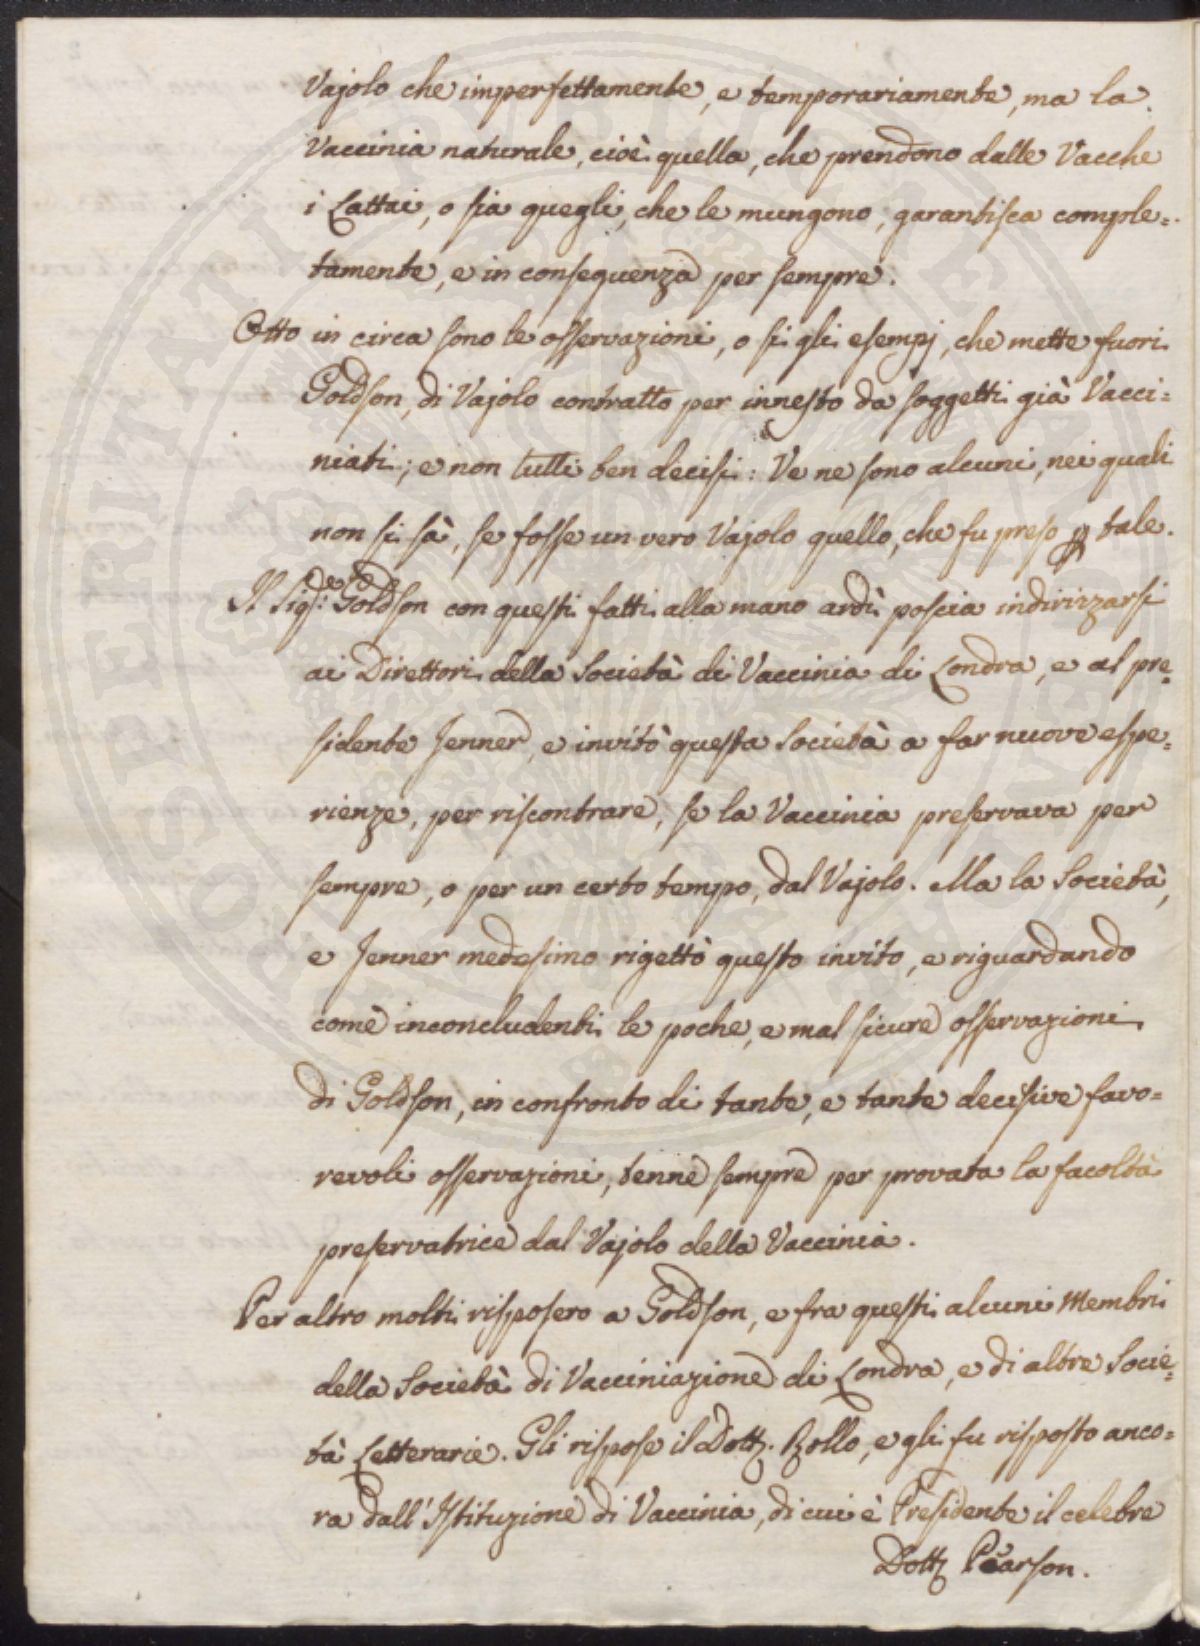 Vajolo che imperfettamente, e temporariamente, ma la
Vaccinia naturale, cioè quella, che prendono dalle Vacche
i Lattai, o sia quegli, che le mungono, garantisca comple=
tamente, e in conseguenza per sempre.
Otto in circa sono le osservazioni, o si gli esempj, che mette fuori
Goldson, di Vajolo contratto per innesto da soggetti già Vacci=
niati; e non tutti ben decisi: Ve ne sono alcuni, nei quali
non si sà, se fosse un vero Vajolo quello, che fu preso p tale.
Il Sigr. Goldson con questi fatti alla mano ardì poscia indirizzarsi
ai Direttori della Società di Vaccinia di Londra, e al pre=
sidente Jenner, e invitò questa Società a far nuove espe=
rienze, per riscontrare, se la Vaccinia preservava per
sempre, o per un certo tempo, dal Vajolo. Ma la Società,
e Jenner medesimo rigettò questo invito, e riguardando
come inconcludenti le poche, e mal sicure osservazioni
di Goldson, in confronto di tante, e tante decisive favo=
revoli osservazioni, tenne sempre per provata la facoltà
preservatrice dal Vajolo della Vaccinia.
Per altro molti risposero a Goldson, e fra questi alcuni Membri
della Società di Vacciniazione di Londra, e di altre Socie=
tà Letterarie. Gli rispose il Dott. Rollo, e gli fu risposto anco=
ra dall'Istituzione di Vaccinia, di cui è Presidente il celebre
Dott Pearson.
PROSPERITATI PUBLICAE AUGENDAE